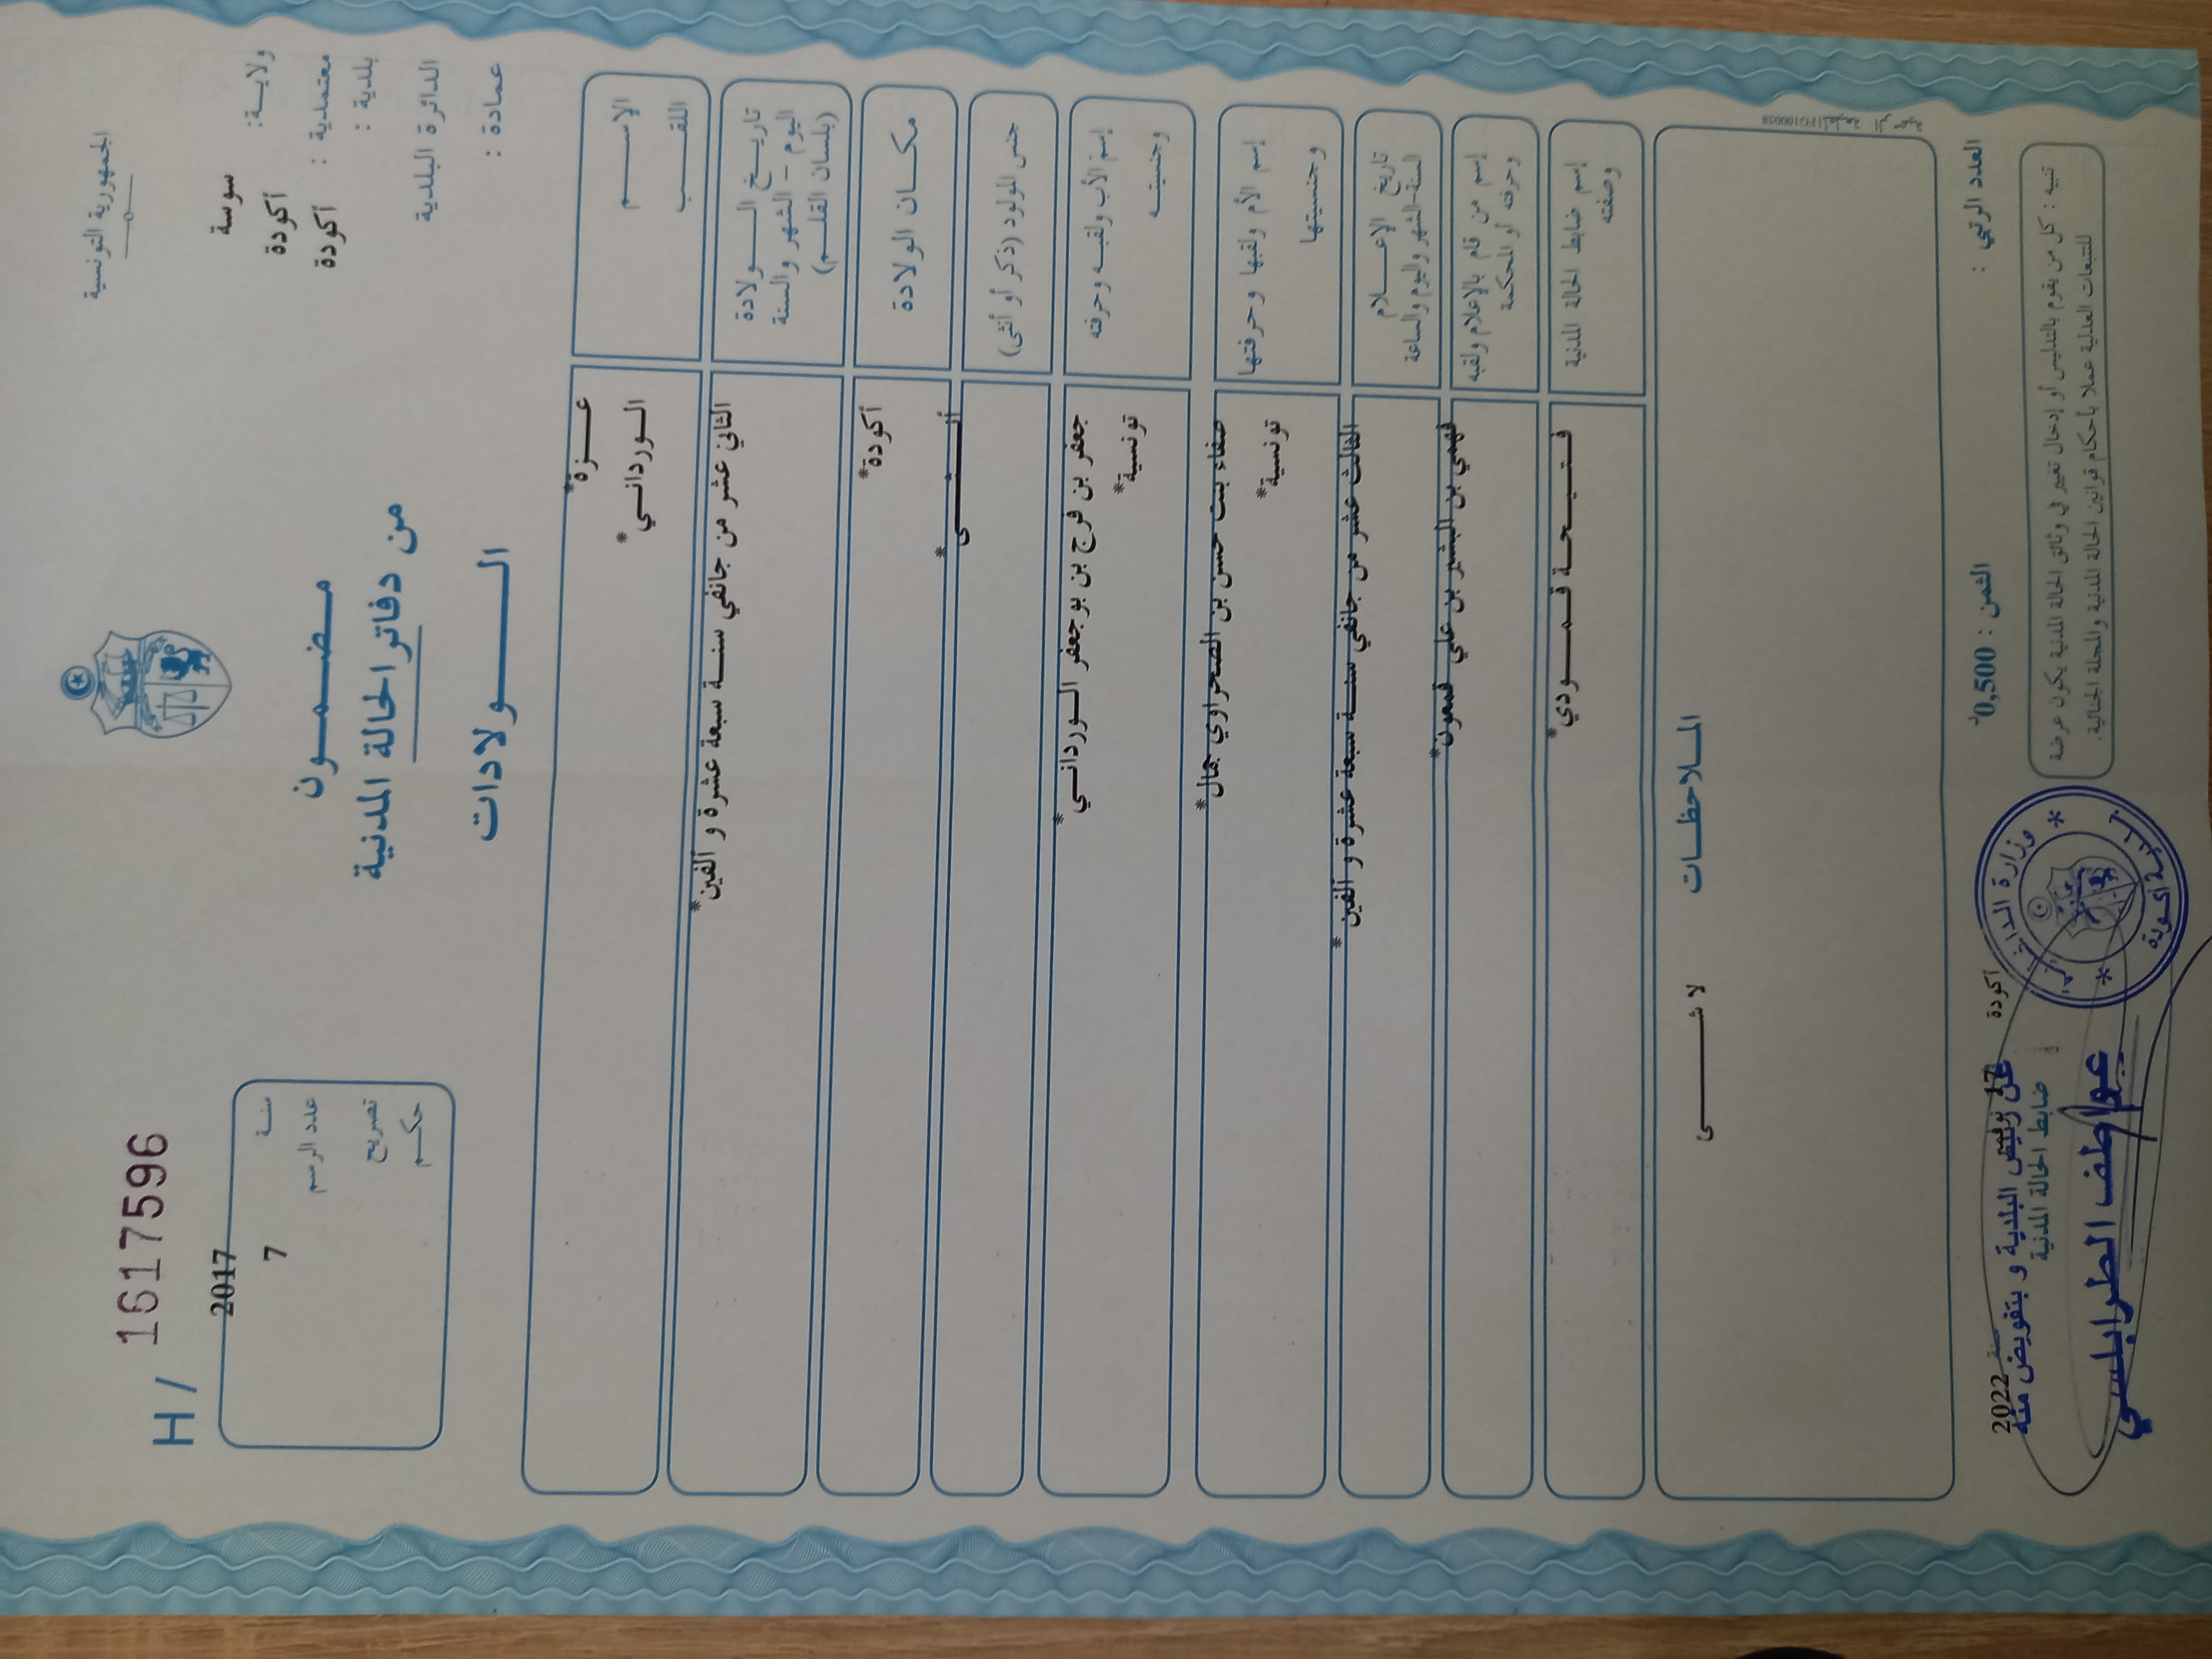 الجمهورية التونسية
H / 1617596
ولايـة: سوسة
معتمدية : أكودة
بلدية : أكودة
الدائرة البلدية
عمادة :
مـضـمـون
من دفاتر الحالة المدنية
الـــولادات
سنـة 2017
عدد الرسم 7
تصريح
حكـم
الإســـم عـــزة*
اللقـــب الـورداني*
تاريـخ الـــولادة
اليوم - الشهر والسنة
(بلسان القلـم)
الثاني عشر من جانفي سنـة سبعة عشرة و ألفين*
مكــان الولادة أكودة*
جنس المولود (ذكر أو أنثى) أنـثـى*
إسم الأب ولقبـه وحرفته جعفر بن فرج بن بوجعفر الـوردانـي*
وجنسيتـه تونسية*
إسم الأم ولقبها وحرفتها صفاء بنت حسن بن الصحراوي جمال*
وجنسيتها تونسية*
تاريخ الإعــلام
السنة-الشهر واليوم والساعة
الثالث عشر من جانفي سنـة سبعة عشرة و ألفين*
إسم من قام بالإعلام ولقبه
وحرفته أو المحكمة
فهمي بن البشير بن علي قمعون*
إسم ضابط الحالة المدنية
وصفته
فـتـيـحـة قـمـودي*
المـلاحظـات
لا شـــــى
العدد الرتبي :
الثمن : 0,500د
تنبيه : كل من يقوم بالتدليس أو إدخال تغيير في وثائق الحالة المدنية يكون عرضة
للتتبعات العدلية عملا بأحكام قوانين الحالة المدنية والمجلة الجنائية.
أكودة 17 سنة 2022
عن رئيس البلدية و بتفويض منه
ضابط الحالة المدنية
عواطف الطرابلسي
وزارة الداخلية
بلدية أكودة